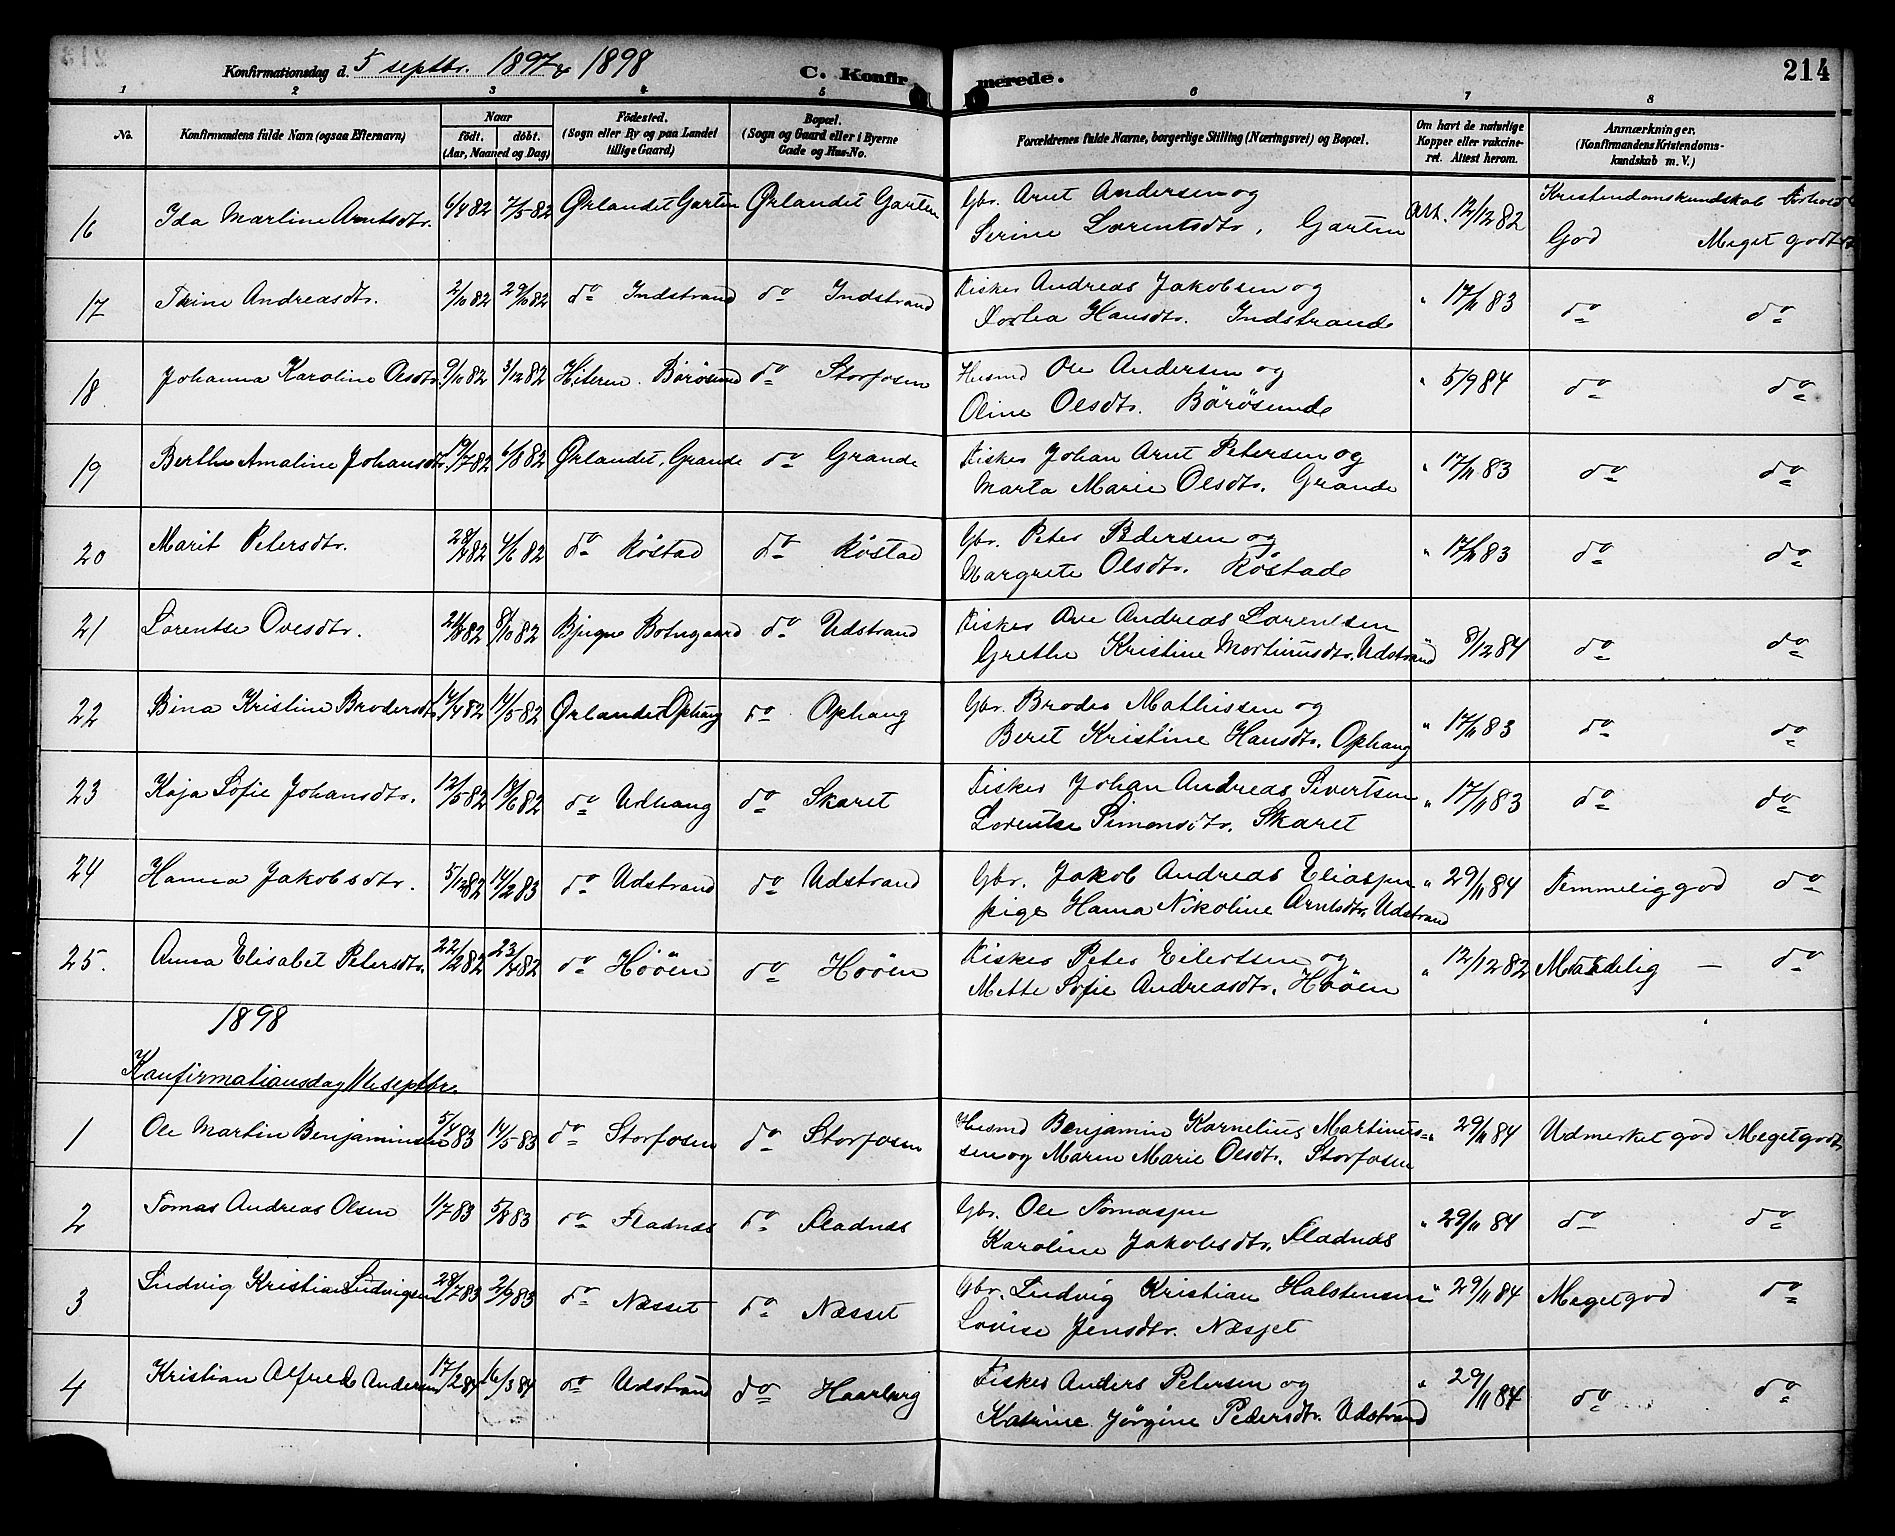 Konfirmationsdag d. 5 septbr. 1897 & 1898
C. Konfirmerede.
214
1 2 3 4 5 6 7 8
No. Konfirmandens fulde Navn (ogsaa Efternavn) Naar födt. döbt. (Aar, Maaned og Dag) Födested. (Sogn eller By og paa Landet tillige Gaard) Bopæl. (Sogn og Gaard eller i Byerne Gade og Hus-No. Forældrenes fulde Navne, borgerlige Stilling (Næringsvei) og Bopæl. Om havt de naturlige Kopper eller vakcineret. Attest herom. Anmærkninger. (Konfirmandens Kristendomskundskab m. V.)
16 Ida Martine Arntsdtr. 6/4 82 7/5-82 Ørlandet Garten Ørlandet Garten Gbr. Arnt Andersen og Att. 12/12 82 Kristendomskundskab Forhold
Serine Lorentsdtr. Garten God Meget godt
17 Trine Andreasdtr. 2/10 82 29/10 82 do Indstrand do Indstrand Fisker Andreas Jakobsen og " 17/11 83 do do
Dorlea Hansdtr. Indstrande
18 Johanna Karoline Olsdtr. 9/10 82 3/12 82 Hiteren. Börösund do Storfosen Husmd Ole Andersen og " 5/9 84 do do
Oline Olsdtr. Börösunde
19 Berthe Amaline Johansdtr. 19/7 82 6/8 82 Ørlandet, Grande do Grande Fisker Johan Arnt Petersen og " 17/11 83 do do
Marta Marie Olsdtr. Grande
20 Marit Petersdtr. 4/6 82 do Röstad do Röstad Gbr. Peter Pedersen og " 17/11 83 do do
Margrete Olsdtr. Röstade
21 Lorentse Ovesdtr. 8/10 82 Bjugn Botngaard do Udstrand Fisker Ove Andreas Lorentsen
Grethe Kristine Mortinusdtr. Udstrand " 8/12 84 do do
22 Bina Kristine Brodersdtr. 17/4 82 14/5-82 Ørlandet Ophaug do Ophaug Gbr. Broder Mathissen og " 17/11 83 do do
Beret Kristine Hansdtr. Ophaug
23 Kaja Sofie Johansdtr. 12/5 82 18/6 82 do Udhaug do Skaret Fisker Johan Andreas Sivertsen " 17/11 83 do do
Lorentse Simonsdtr. Skaret
24 Hanna Jakobsdtr. 5/12 82 14/2 83 do Udstrand do Udstrand Gbr. Jakob Andreas Eliassen " 29/11 84 Temmelig god do
pige Hanna Nikoline Arntsdtr. Udstrand
25. Anna Elisabet Petersdtr. 22/12 82 do Hööen do Hööen Fisker Peter Eilertsen og " 12/12 82 Maadelig — do
Mette Sofie Andreasdtr. Hööen
1898
Konfirmationsdag 11te septbr.
1 Ole Martin Benjaminsen 5/4 83 14/5-83 do Storfosen do Storfosen Husmd Benjamin Kornelius Martinus- " 29/11 84 Udmerket god Meget godt
sen og Maren Marie Olsdtr. Storfosen
2 Tomas Andreas Olsen 1/7 83 5/8 83 do Fladnes do Fladnes Gbr. Ole Tomassen " 29/11 84 do do
Karoline Jakobsdtr. Fladnes
3 Ludvig Kristian Ludvigsen 28/7 83 2/9 83 do Næsset do Næsset Gbr. Ludvig Kristian Halstensen " 29/11 84 Meget god do
Lovise Jensdtr. Næsset
4 Kristian Alfred Andersen 17/2 84 16/3 84 do Udstrand do Haarberg Fisker Anders Petersen og " 29/11 84 do do
Katrine Jörgine Pedersdtr. Udstrand